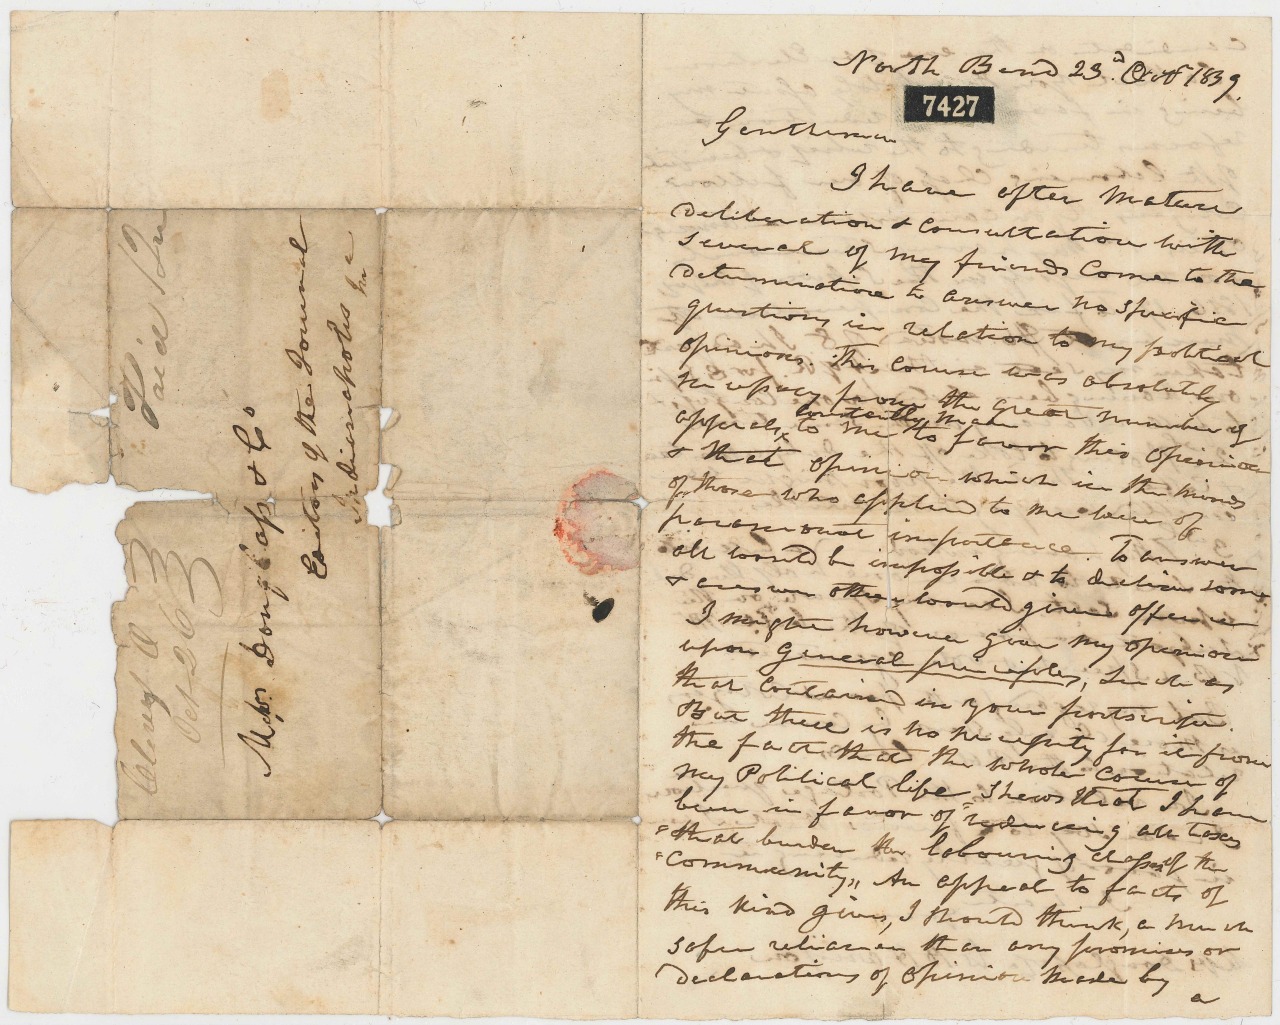 North Bend 23.d Oct 1839.
7427
Gentlemen
I have after mature
deliberation & consultation with
several of my friends come to the
determination to answer no specific
questions in relation to my political
opinions. This course was absolutely
necessary from the great number of
constantly made
appeals to me to favor this opinion
& that opinion which in the minds
of those who applied to me were of
paramount importance. To answer
all would be impossible & to decline some
& answer others would give offence
I might however give my opinion
upon General principles, such as
that contained in your postscript.
But there is no necessity for it from
the fact that the whole course of
my Political life shews that I have
been in favor of "reducing all taxes
"that burden the labouring classes of the
"community". An appeal to facts of
this kind gives, I should think, a much
safer reliance than any promises or
declarations of opinion made by
a
Messrs. Douglass & Co
Editors of the Journal
Indianapolis
Ia
Free
Cleves O
Oct 26